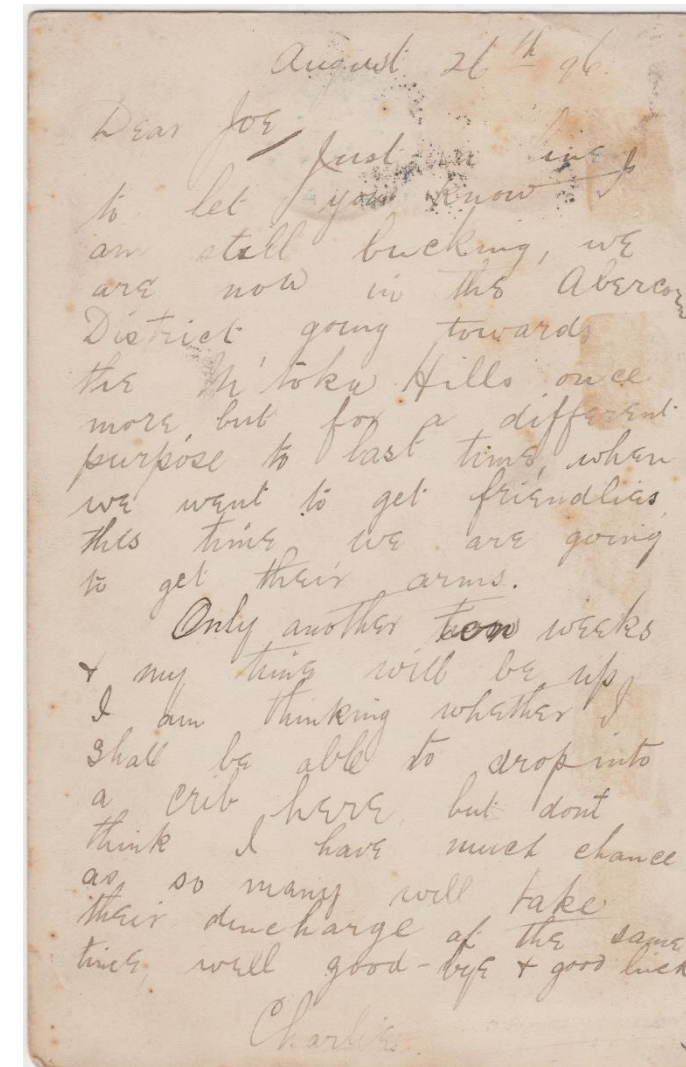 August 26th 96.
Dear Joe
Just a line
to let you know I
am still bucking, we
are now in the Abercorn
District going towards
the M'toko Hills once
more, but for a different
purpose to last time, when
we went to get friendlies,
this time we are going
to get their arms.
Only another weeks
& my time will be up
I am thinking whether I
shall be able to drop into
a crib here, but dont
think I have much chance
as so many will take
their discharge at the same
time, well good-bye & good luck
Charlie.